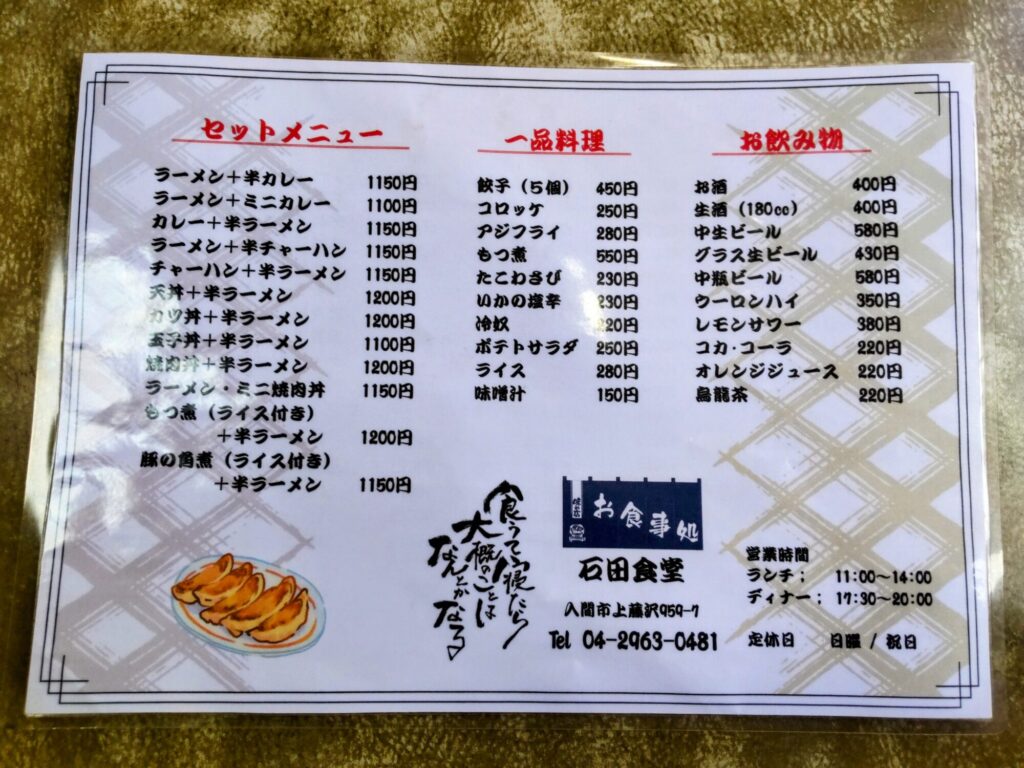 セットメニュー
ラーメン＋半カレー 1150円
ラーメン＋ミニカレー 1100円
カレー＋半ラーメン 1150円
ラーメン＋半チャーハン 1150円
チャーハン＋半ラーメン 1150円
天丼＋半ラーメン 1200円
カツ丼＋半ラーメン 1200円
玉子丼＋半ラーメン 1100円
焼肉丼＋半ラーメン 1200円
ラーメン・ミニ焼肉丼 1150円
もつ煮（ライス付き）
＋半ラーメン 1200円
豚の角煮（ライス付き）
＋半ラーメン 1150円
一品料理
餃子（５個） 450円
コロッケ 250円
アジフライ 280円
もつ煮 550円
たこわさび 230円
いかの塩辛 230円
冷奴 220円
ポテトサラダ 250円
ライス 280円
味噌汁 150円
お飲み物
お酒 400円
生酒（180cc） 400円
中生ビール 580円
グラス生ビール 430円
中瓶ビール 580円
ウーロンハイ 350円
レモンサワー 380円
コカ・コーラ 220円
オレンジジュース 220円
烏龍茶 220円
食うて寝たら
大概のことは
なんとかなる
お食事処
石田食堂
入間市上藤沢959-7
Tel 04-2963-0481
営業時間
ランチ； 11:00～14:00
ディナー； 17:30～20:00
定休日 日曜 / 祝日